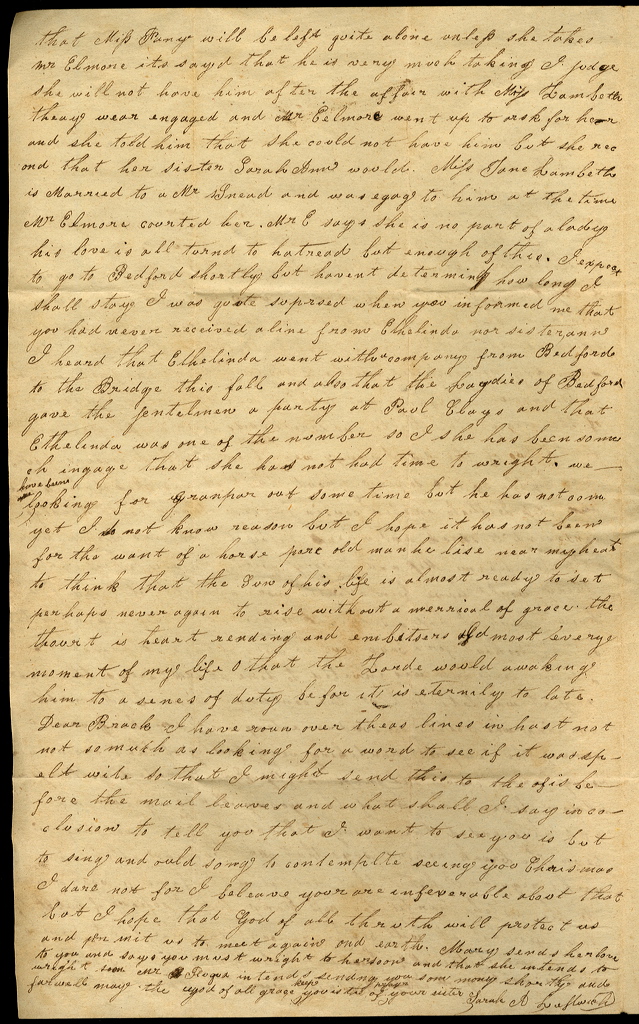 that Miss Pany will be left quite alone unless she takes
mr Elmore its sayd that he is very much taking I judge
she will not have him after the affair with Miss Lambeth
theay wear engaged and Mr Eelmore went up to ask for her
and she told him that she could not have him but she rec
ond that her sister Sarah Ann would. Miss Jane Lambeth
is Married to a Mr Snead and was egag to him at the time
Mr Elmore courted her. Mr E says she is no part of a lady
his love is all turnd to hatread but enough of this. I expect
to go to Bedford shortly but havent determing how long I
shall stay I was quite suprsed when you informed me that
you had never received a line from Ethelinda nor sister ann
I heard that Ethelinda went with a company from Bedford
to the Bridge this fall and also that the Laydies of Bedford
gave the gentelmen a party at Paul Clays and that
Ethelinda was one of the number so I she has been som
ch engage that she has not had time to wright. we
have bin
looking for Granpar out some time but he has not com
yet I do not know reason but I hope it has not been
for the want of a horse pore old man he lise near my heart
to think that the Sun of his life is almost ready to set
perhaps never again to rise without a merrical of grace the
thourt is heart rending and embitsers almost every
moment of my life O that the Lorde would awaking
him to a senes of duty befor it is eternily to late.
Dear Brock I have roun over theas lines in hast not
not so muth as looking for a word to see if it was sp-
elt wite so that I might send this to the ofis be-
fore the mail leaves and what shall I say in co-
clusion to tell you that I want to see you is but
to sing and ould song to contemplte seeing you Chrismas
I dare not for I beleave your are infeverable about that
but I hope that God of all thruth will protect us
and permit us to meet again ond earth. Mary sends her love
to you and says you must wright to her soon and that she intends to
wright soon Mr intends sending you som money shortly and
farwell may the god of all grace keep you is the of your sister Sarah A Leftwich